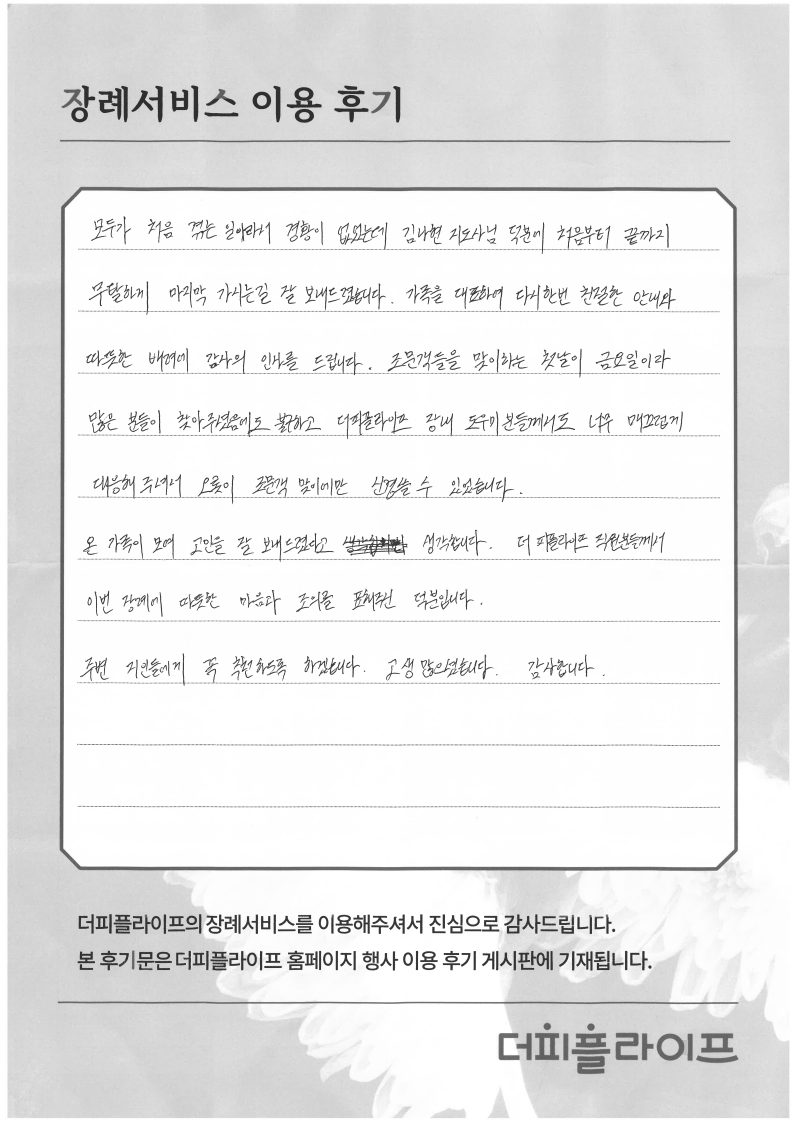 장례서비스 이용 후기
모두가 처음 겪는 일이라서 경황이 없었는데 김나현 지도사님 덕분에 처음부터 끝까지
무탈하게 마지막 가시는길 잘 보내드렸습니다. 가족을 대표하여 다시한번 친절한 안내와
따뜻한 배려에 감사의 인사를 드립니다. 조문객들을 맞이하는 첫날이 금요일이라
많은 분들이 찾아주셨음에도 불구하고 더피플라이프 장내 도우미분들께서도 너무 매끄럽게
대응해 주셔서 오롯이 조문객 맞이에만 신경쓸 수 있었습니다.
온 가족이 모여 고인을 잘 보내드렸다고 생각합니다. 더 피플라이프 직원분들께서
이번 장례에 따뜻한 마음과 조의를 표해주신 덕분입니다.
주변 지인들에게 꼭 추천하도록 하겠습니다. 고생 많으셨습니다. 감사합니다.
더피플라이프의 장례서비스를 이용해주셔서 진심으로 감사드립니다.
본 후기문은 더피플라이프 홈페이지 행사 이용 후기 게시판에 기재됩니다.
더피플라이프